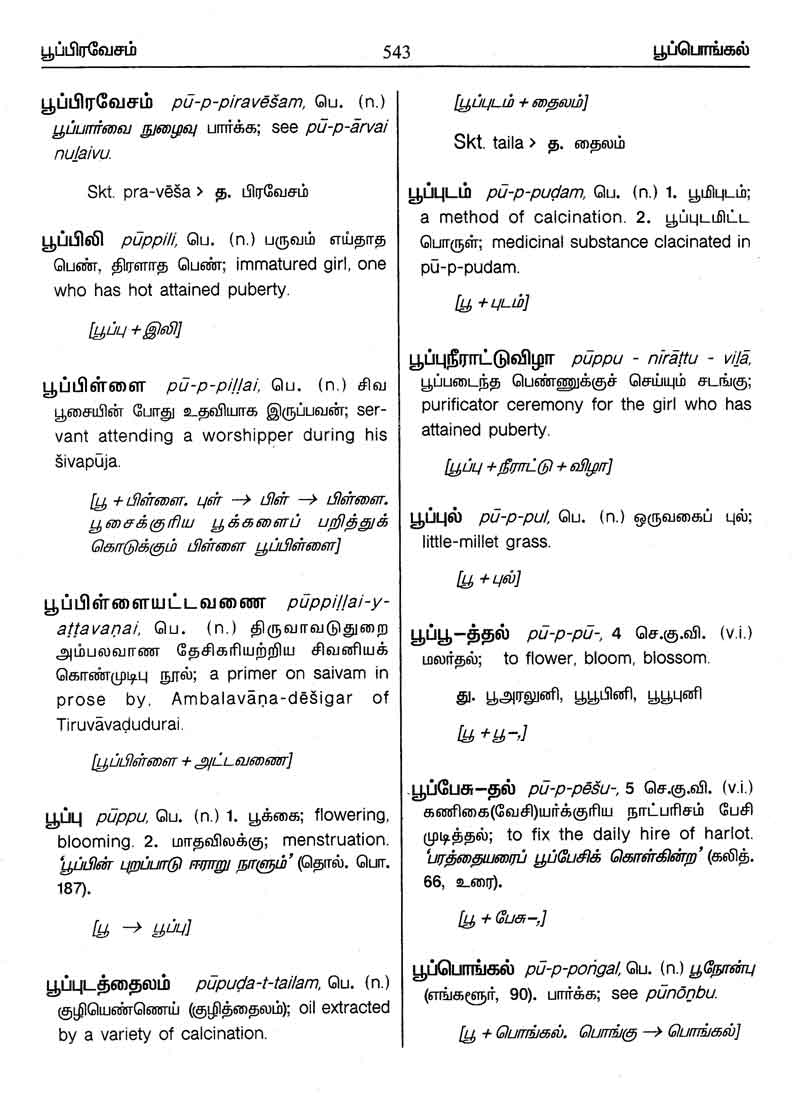 பூப்பிரவேசம்
543
பூப்பொங்கல்
பூப்பிரவேசம் pū-p-piravēšam, பெ. (n.)
பூப்பார்வை நுழைவு பார்க்க; see pū-p-ārvai
nuḻaivu.
Skt. pra-vēša > த. பிரவேசம்
பூப்பிலி pūppili, பெ. (n.) பருவம் எய்தாத
பெண், திரளாத பெண்; immatured girl, one
who has hot attained puberty.
[பூப்பு + இலி]
பூப்பிள்ளை pū-p-piḷḷai, பெ. (n.) சிவ
பூசையின் போது உதவியாக இருப்பவன்; ser-
vant attending a worshipper during his
šivapūja.
[பூ + பிள்ளை. புள் → பிள் → பிள்ளை.
பூசைக்குரிய பூக்களைப் பறித்துக்
கொடுக்கும் பிள்ளை பூப்பிள்ளை]
பூப்பிள்ளையட்டவணை pūppiḷḷai-y-
aṭṭavaṇai, பெ. (n.) திருவாவடுதுறை
அம்பலவாண தேசிகரியற்றிய சிவனியக்
கொண்முடிபு நூல்; a primer on saivam in
prose by, Ambalavāṇa-dēšigar of
Tiruvāvaḍudurai.
[பூப்பிள்ளை + அட்டவணை]
பூப்பு pūppu, பெ. (n.) 1. பூக்கை; flowering,
blooming. 2. மாதவிலக்கு; menstruation.
‘பூப்பின் புறப்பாடு ஈராறு நாளும்’ (தொல். பொ.
187).
[பூ → பூப்பு]
பூப்புடத்தைலம் pūpuḍa-t-tailam, பெ. (n.)
குழியெண்ணெய் (குழித்தைலம்); oil extracted
by a variety of calcination.
[பூப்புடம் + தைலம்]
Skt. taila > த. தைலம்
பூப்புடம் pū-p-puḍam, பெ. (n.) 1. பூமிபுடம்;
a method of calcination. 2. பூப்புடமிட்ட
பொருள்; medicinal substance clacinated in
pū-p-pudam.
[பூ + புடம்]
பூப்புநீராட்டுவிழா pūppu - nīrāṭṭu - viḻā,
பூப்படைந்த பெண்ணுக்குச் செய்யும் சடங்கு;
purificator ceremony for the girl who has
attained puberty.
[பூப்பு + நீராட்டு + விழா]
பூப்புல் pū-p-pul, பெ. (n.) ஒருவகைப் புல்;
little-millet grass.
[பூ + புல்]
பூப்பூ–த்தல் pū-p-pū-, 4 செ.கு.வி. (v.i.)
மலர்தல்; to flower, bloom, blossom.
து. பூஅரலுனி, பூபூபினி, பூபூபுனி
[பூ + பூ–,]
பூப்பேசு–தல் pū-p-pēšu-, 5 செ.கு.வி. (v.i.)
கணிகை(வேசி)யர்க்குரிய நாட்பரிசம் பேசி
முடித்தல்; to fix the daily hire of harlot.
‘பரத்தையரைப் பூப்பேசிக் கொள்கின்ற’ (கலித்.
66, உரை).
[பூ + பேசு–,]
பூப்பொங்கல் pū-p-poṅgal, பெ. (n.) பூநோன்பு
(எங்களூர், 90). பார்க்க; see pūnōṉbu.
[பூ + பொங்கல். பொங்கு → பொங்கல்]